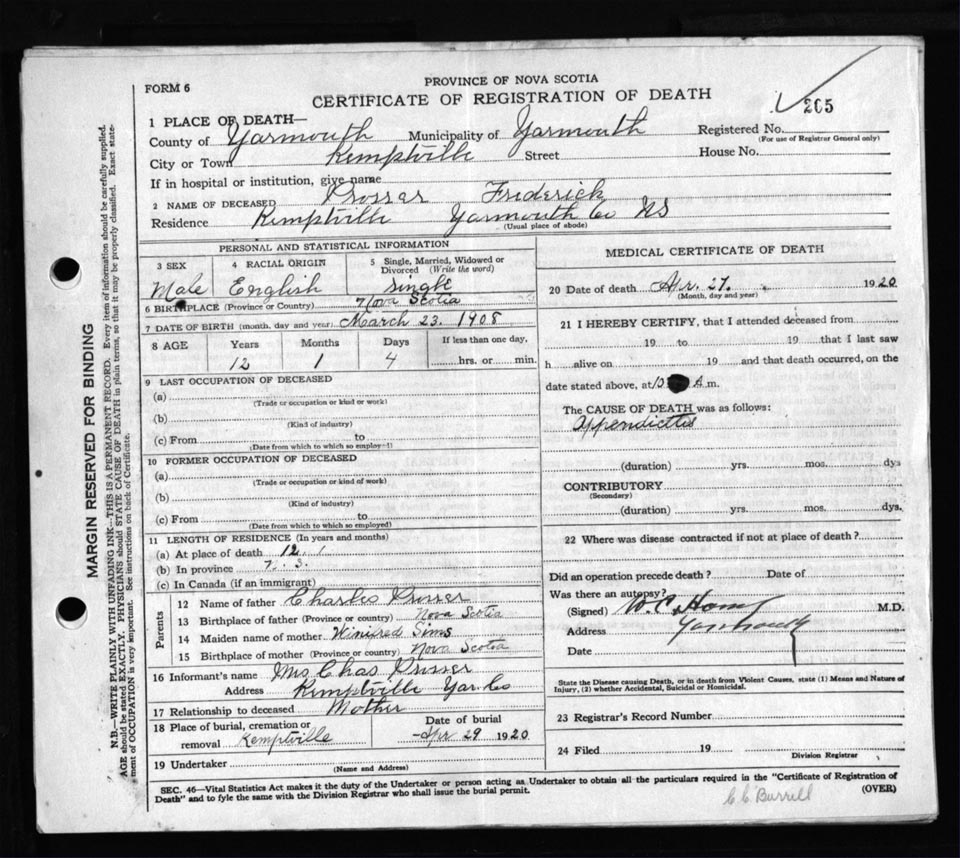 FORM 6
PROVINCE OF NOVA SCOTIA
CERTIFICATE OF REGISTRATION OF DEATH
265
1 PLACE OF DEATH—
County of Yarmouth Municipality of Yarmouth Registered No.
(For use of Registrar General only)
City or Town Kemptville Street House No.
If in hospital or institution, give name
2 NAME OF DECEASED Prosser Frederick
Residence Kemptville Yarmouth Co NS
(Usual place of abode)
PERSONAL AND STATISTICAL INFORMATION
3 SEX Male
4 RACIAL ORIGIN English
5 Single, Married, Widowed or Divorced (Write the word) Single
6 BIRTHPLACE (Province or Country) Nova Scotia
7 DATE OF BIRTH (month, day and year) March 23. 1908
8 AGE Years Months Days If less than one day,
12 1 4 hrs. or min.
9 LAST OCCUPATION OF DECEASED
(a)
(Trade or occupation or kind or work)
(b)
(Kind of industry)
(c) From to
(Date from which to which so employed)
10 FORMER OCCUPATION OF DECEASED
(a)
(Trade or occupation or kind of work)
(b)
(Kind of industry)
(c) From to
(Date from which to which so employed)
11 LENGTH OF RESIDENCE (In years and months)
(a) At place of death 12. 1
(b) In province N. S.
(c) In Canada (if an immigrant)
Parents
12 Name of father Charles Prosser
13 Birthplace of father (Province or country) Nova Scotia
14 Maiden name of mother Winifred Sims
15 Birthplace of mother (Province or country) Nova Scotia
16 Informant's name Mrs Chas Prosser
Address Kemptville Yar Co
17 Relationship to deceased Mother
18 Place of burial, cremation or removal Kemptville
Date of burial Apr 29 1920
19 Undertaker
(Name and Address)
MEDICAL CERTIFICATE OF DEATH
20 Date of death Apr. 27. 1920
(Month, day and year)
21 I HEREBY CERTIFY, that I attended deceased from
19 to 19 that I last saw
h alive on 19 and that death occurred, on the
date stated above, at 10 A.m.
The CAUSE OF DEATH was as follows:
Appendicitis
(duration) yrs. mos. dys
CONTRIBUTORY
(Secondary)
(duration) yrs. mos. dys.
22 Where was disease contracted if not at place of death?
Did an operation precede death? Date of
Was there an autopsy?
(Signed) W. C. M.D.
Address Yarmouth
Date
State the Disease causing Death, or in death from Violent Causes, state (1) Means and Nature of
Injury, (2) whether Accidental, Suicidal or Homicidal.
23 Registrar's Record Number
24 Filed 19
Division Registrar
SEC. 46—Vital Statistics Act makes it the duty of the Undertaker or person acting as Undertaker to obtain all the particulars required in the "Certificate of Registration of
Death" and to fyle the same with the Division Registrar who shall issue the burial permit.
(OVER)
C C Burrill
MARGIN RESERVED FOR BINDING
N.B.—WRITE PLAINLY WITH UNFADING INK—THIS IS A PERMANENT RECORD. Every item of information should be carefully supplied.
AGE should be stated EXACTLY. PHYSICIANS should STATE CAUSE OF DEATH in plain terms, so that it may be properly classified. Exact state-
ment of OCCUPATION is very important. See instructions on back of Certificate.